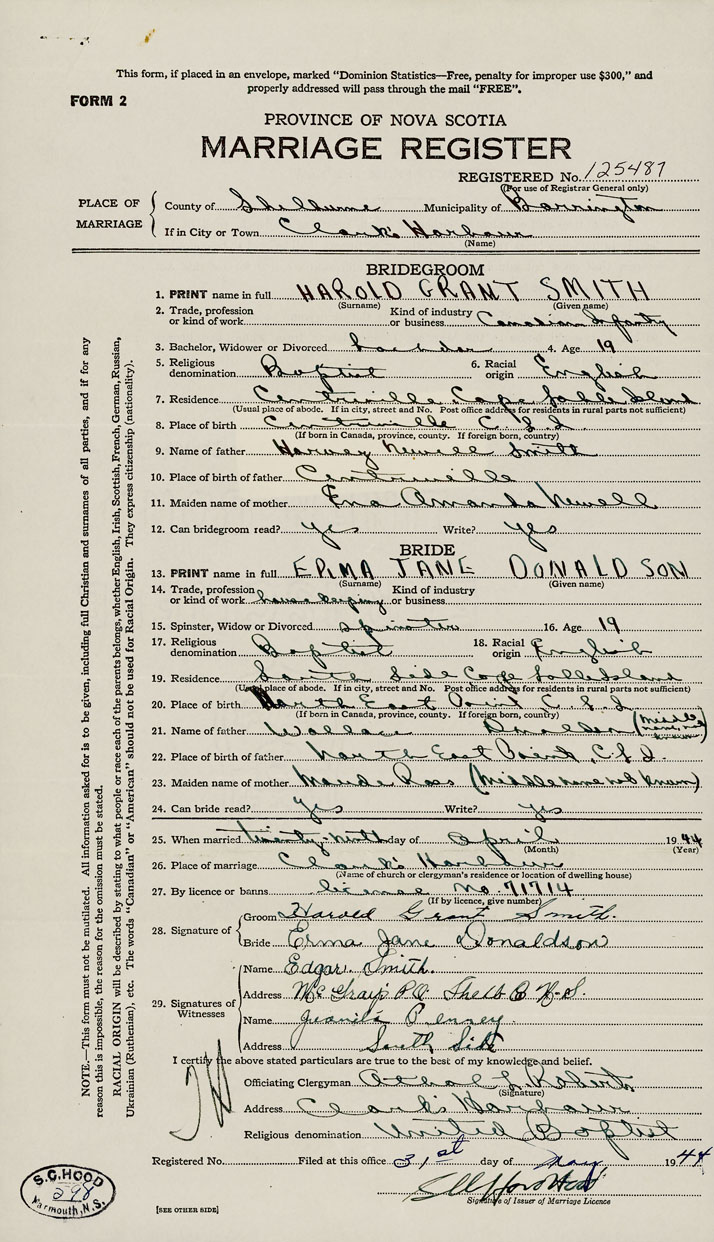 This form, if placed in an envelope, marked “Dominion Statistics—Free, penalty for improper use $300,” and
properly addressed will pass through the mail “FREE”.
FORM 2
PROVINCE OF NOVA SCOTIA
MARRIAGE REGISTER
REGISTERED No. 125487
(For use of Registrar General only)
PLACE OF MARRIAGE
County of Shelburne Municipality of Barrington
If in City or Town Clark's Harbour
(Name)
BRIDEGROOM
1. PRINT name in full HAROLD GRANT SMITH
(Surname) (Given name)
2. Trade, profession or kind of work Kind of industry or business Canadian Infantry
3. Bachelor, Widower or Divorced bachelor 4. Age 19
5. Religious denomination Baptist 6. Racial origin English
7. Residence Centreville Cape Sable Island
(Usual place of abode. If in city, street and No. Post office address for residents in rural parts not sufficient)
8. Place of birth Centreville C. S. I.
(If born in Canada, province, county. If foreign born, country)
9. Name of father Harvey Newell Smith
10. Place of birth of father Centreville
11. Maiden name of mother Ena Amanda Newell
12. Can bridegroom read? yes Write? yes
BRIDE
13. PRINT name in full ERMA JANE DONALDSON
(Surname) (Given name)
14. Trade, profession or kind of work house keeping Kind of industry or business
15. Spinster, Widow or Divorced spinster 16. Age 19
17. Religious denomination Baptist 18. Racial origin English
19. Residence South Side Cape Sable Island
(Usual place of abode. If in city, street and No. Post office address for residents in rural parts not sufficient)
20. Place of birth North East Point C. S. I.
(If born in Canada, province, county. If foreign born, country)
21. Name of father Wallace (middle name not known)
22. Place of birth of father North East Point, C. S. I.
23. Maiden name of mother Maude Ross (Middle name not known)
24. Can bride read? yes Write? yes
25. When married twenty-ninth day of April 1944
(Month) (Year)
26. Place of marriage Clark's Harbour
(Name of church or clergyman's residence or location of dwelling house)
27. By licence or banns license No. 71714
(If by licence, give number)
28. Signature of
Groom Harold Grant Smith.
Bride Erma Jane Donaldson
29. Signatures of Witnesses
Name Edgar Smith.
Address McGray's P.O. Shelb Co N.S.
Name Juanita Penney.
Address South Side
I certify the above stated particulars are true to the best of my knowledge and belief.
Officiating Clergyman L. Roberts
(Signature)
Address Clark's Harbour
Religious denomination United Baptist
Registered No. Filed at this office 31st day of May 1944
Signature of Issuer of Marriage Licence
[SEE OTHER SIDE]
S.C. HOOD
298
Yarmouth, N.S.
NOTE.—This form must not be mutilated. All information asked for is to be given, including full Christian and surnames of all parties, and if for any
reason this is impossible, the reason for the omission must be stated.
RACIAL ORIGIN will be described by stating to what people or race each of the parents belongs, whether English, Irish, Scottish, French, German, Russian,
Ukrainian (Ruthenian), etc. The words “Canadian” or “American” should not be used for Racial Origin. They express citizenship (nationality).